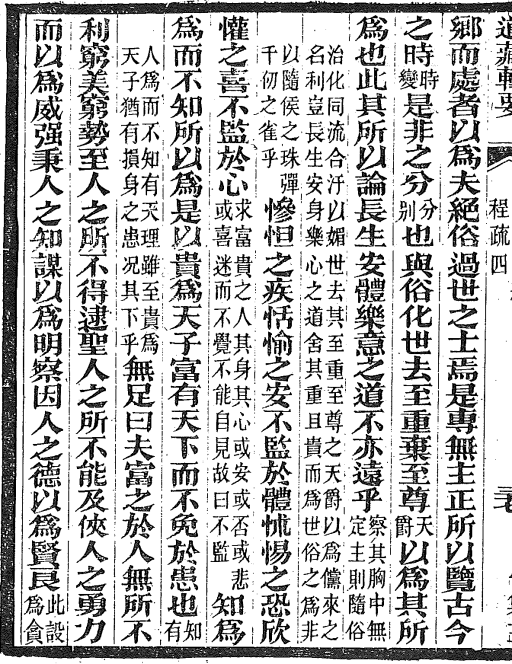 道藏輯要 程疏四
鄉而處者以為夫絕俗過世之士焉是專無主正所以覽古今
之時時變是非之分分別也與俗化世去至重棄至尊天爵以為其所
為也此其所以論長生安體樂意之道不亦遠乎察其胸中無定主則隨俗
治化同流合汙以媚世去其至重至尊之天爵以為儻來之
名利豈長生安身樂心之道舍其重且貴而為世俗之為非
以隨侯之珠彈千仞之雀乎慘怛之疾恬愉之安不監於體怵惕之恐欣
懽之喜不監於心求富貴之人其身其心或安或否或悲或喜迷而不覺不能自見故曰不監知為
為而不知所以為是以貴為天子富有天下而不免於患也知有
人為而不知有天理雖至貴為天子猶有損身之患况其下乎無足曰夫富之於人無所不
利窮美窮勢至人之所不得逮聖人之所不能及俠人之勇力
而以為威强秉人之知謀以為明察因人之德以為賢良此設為貪